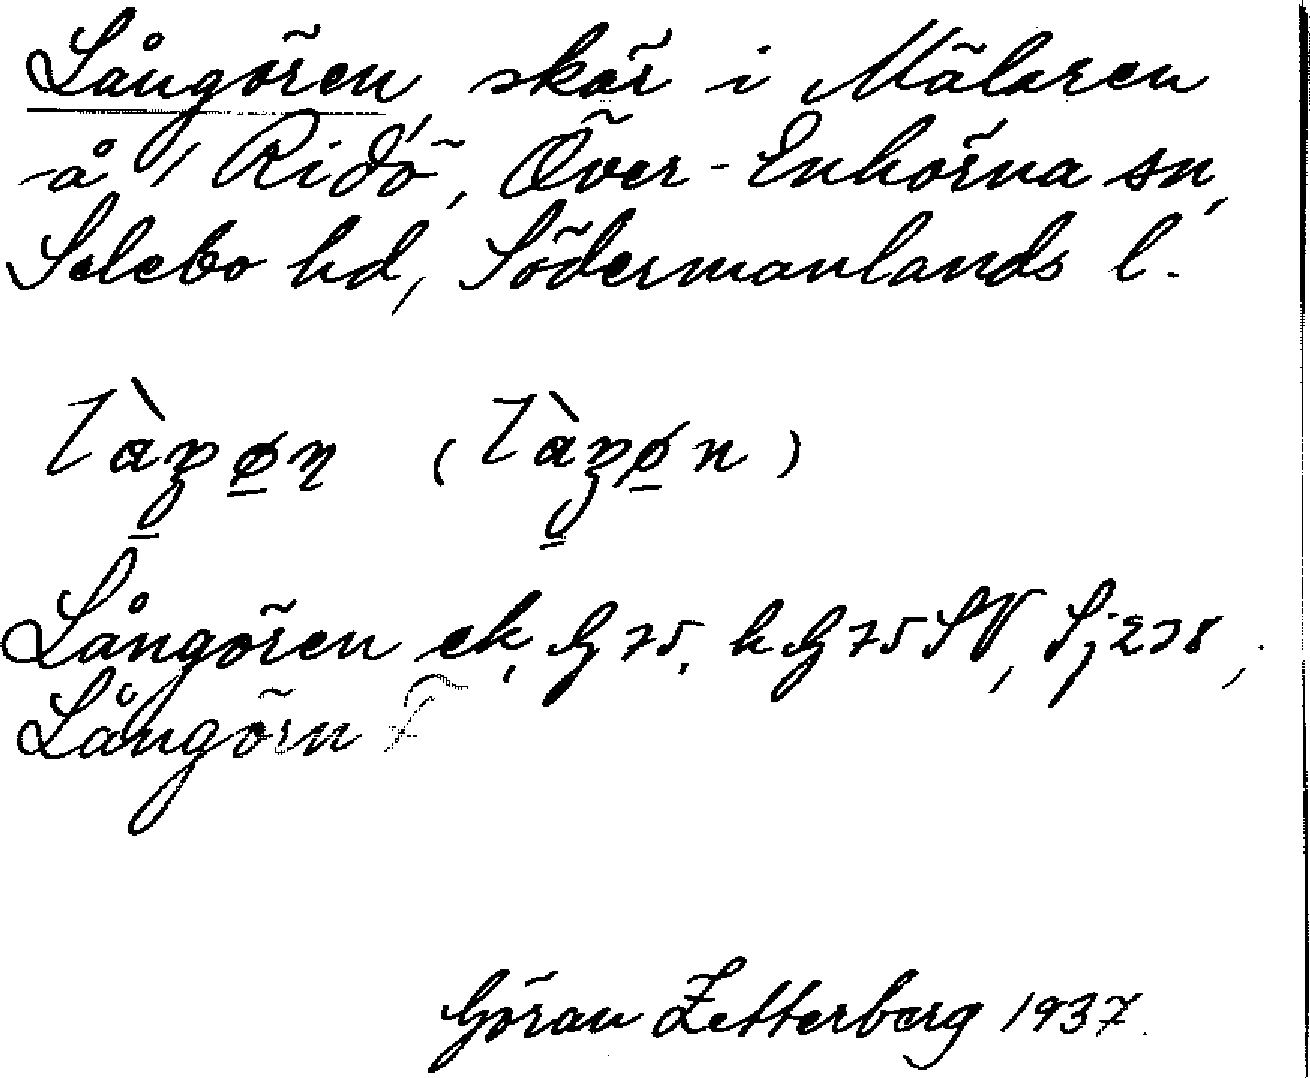 Långören skär i Mälaren
å 1/1 Ridö, Över-Enhörna sn,
Selebo hd, Södermanlands l.
Långören ek, G 75, h G 75 SV, Sj 278,
Långörn F
Göran Zetterberg 1937.